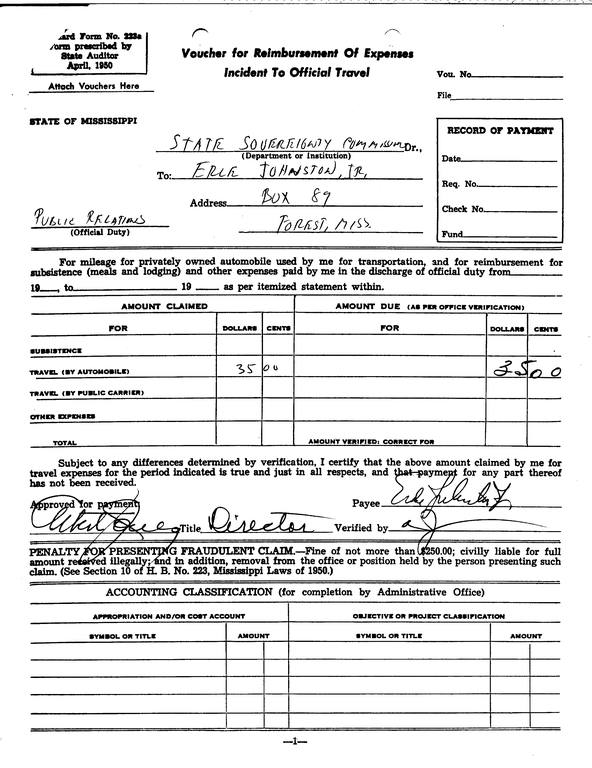 ard Form No. 223a
orm prescribed by
State Auditor
April, 1950
Attach Vouchers Here
Voucher for Reimbursement Of Expenses
Incident To Official Travel
Vou. No.
File
STATE OF MISSISSIPPI
STATE SOVEREIGNTY COMMISSION Dr.,
(Department or Institution)
To: ERLE JOHNSTON, JR.
Address BOX 89
PUBLIC RELATIONS
(Official Duty)
FOREST, MISS.
RECORD OF PAYMENT
Date
Req. No.
Check No.
Fund
For mileage for privately owned automobile used by me for transportation, and for reimbursement for
subsistence (meals and lodging) and other expenses paid by me in the discharge of official duty from
19 , to 19 as per itemized statement within.
AMOUNT CLAIMED AMOUNT DUE (AS PER OFFICE VERIFICATION)
FOR DOLLARS CENTS FOR DOLLARS CENTS
SUBSISTENCE
TRAVEL (BY AUTOMOBILE) 35 00 35 00
TRAVEL (BY PUBLIC CARRIER)
OTHER EXPENSES
TOTAL AMOUNT VERIFIED: CORRECT FOR
Subject to any differences determined by verification, I certify that the above amount claimed by me for
travel expenses for the period indicated is true and just in all respects, and that payment for any part thereof
has not been received.
Approved for payment
Payee Erle Johnston Jr
Title Director Verified by
PENALTY FOR PRESENTING FRAUDULENT CLAIM.—Fine of not more than $250.00; civilly liable for full
amount received illegally; and in addition, removal from the office or position held by the person presenting such
claim. (See Section 10 of H. B. No. 223, Mississippi Laws of 1950.)
ACCOUNTING CLASSIFICATION (for completion by Administrative Office)
APPROPRIATION AND/OR COST ACCOUNT OBJECTIVE OR PROJECT CLASSIFICATION
SYMBOL OR TITLE AMOUNT SYMBOL OR TITLE AMOUNT
—1—